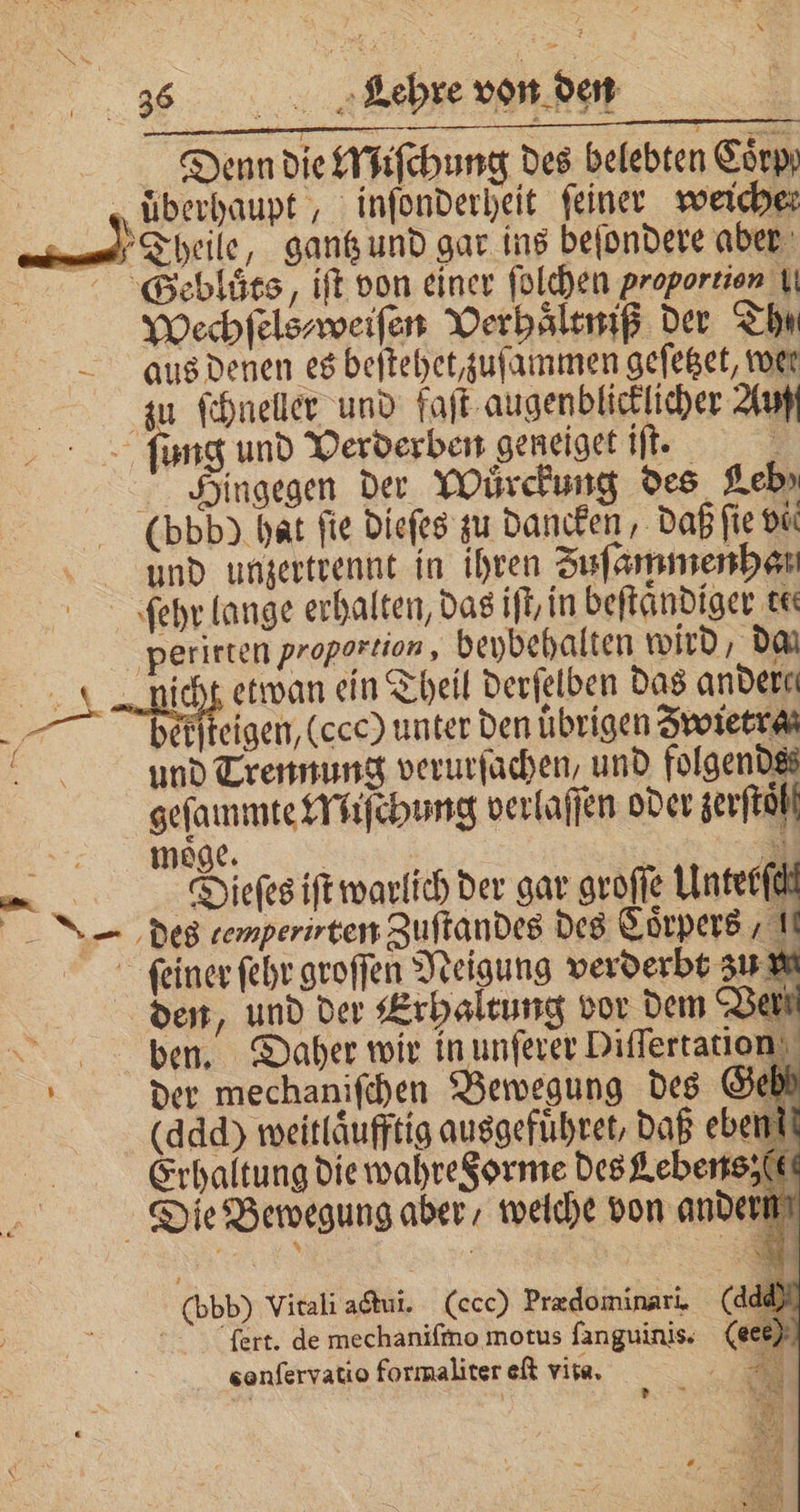 36 Lehre von den
Denn die Miſchung des belebten Coͤrp
uͤberhaupt, inſonderheit ſeiner weiche
Theile, gantz und gar ins beſondere aber
Gebluͤts, iſt von einer ſolchen proportion u
Wechſels-weiſen Verhaͤltniß der The
aus denen es beſtehet, zuſammen geſetzet, we
zu ſchneller und faſt augenblicklicher Aufl
ſung und Verderben geneiget iſt.
Hingegen der Wuͤrckung des Leb
(bbb) hat ſie dieſes zu dancken, daß ſie vi
und unzertrennt in ihren Zuſammenhan
ſehr lange erhalten, das iſt, in beſtaͤndiger te
perirten proportion, beybehalten wird, da
nicht etwan ein Theil derſelben das andere
berſteigen, (ccc) unter den uͤbrigen Zwietra
und Trennung verurſachen, und folgends
geſammte Miſchung verlaſſen oder zerſtoͤ
moͤge.
Dieſes iſt warlich der gar groſſe Unterſch
des temperirten Zuſtandes des Coͤrpers,
ſeiner ſehr groſſen Neigung verderbt zu
den, und der Erhaltung vor dem Ver
ben. Daher wir in unſerer Diſſertation
der mechaniſchen Bewegung des Geb
(ddd) weitlaͤufftig ausgefuͤhret, daß eben
Erhaltung die wahre Forme des Lebens;
Die Bewegung aber, welche von andern
(bbb) Vitali actui. (ccc) Prædominari. (ddd)
ſert. de mechaniſmo motus ſanguinis. (eee)
conſervatio formaliter eſt vita.